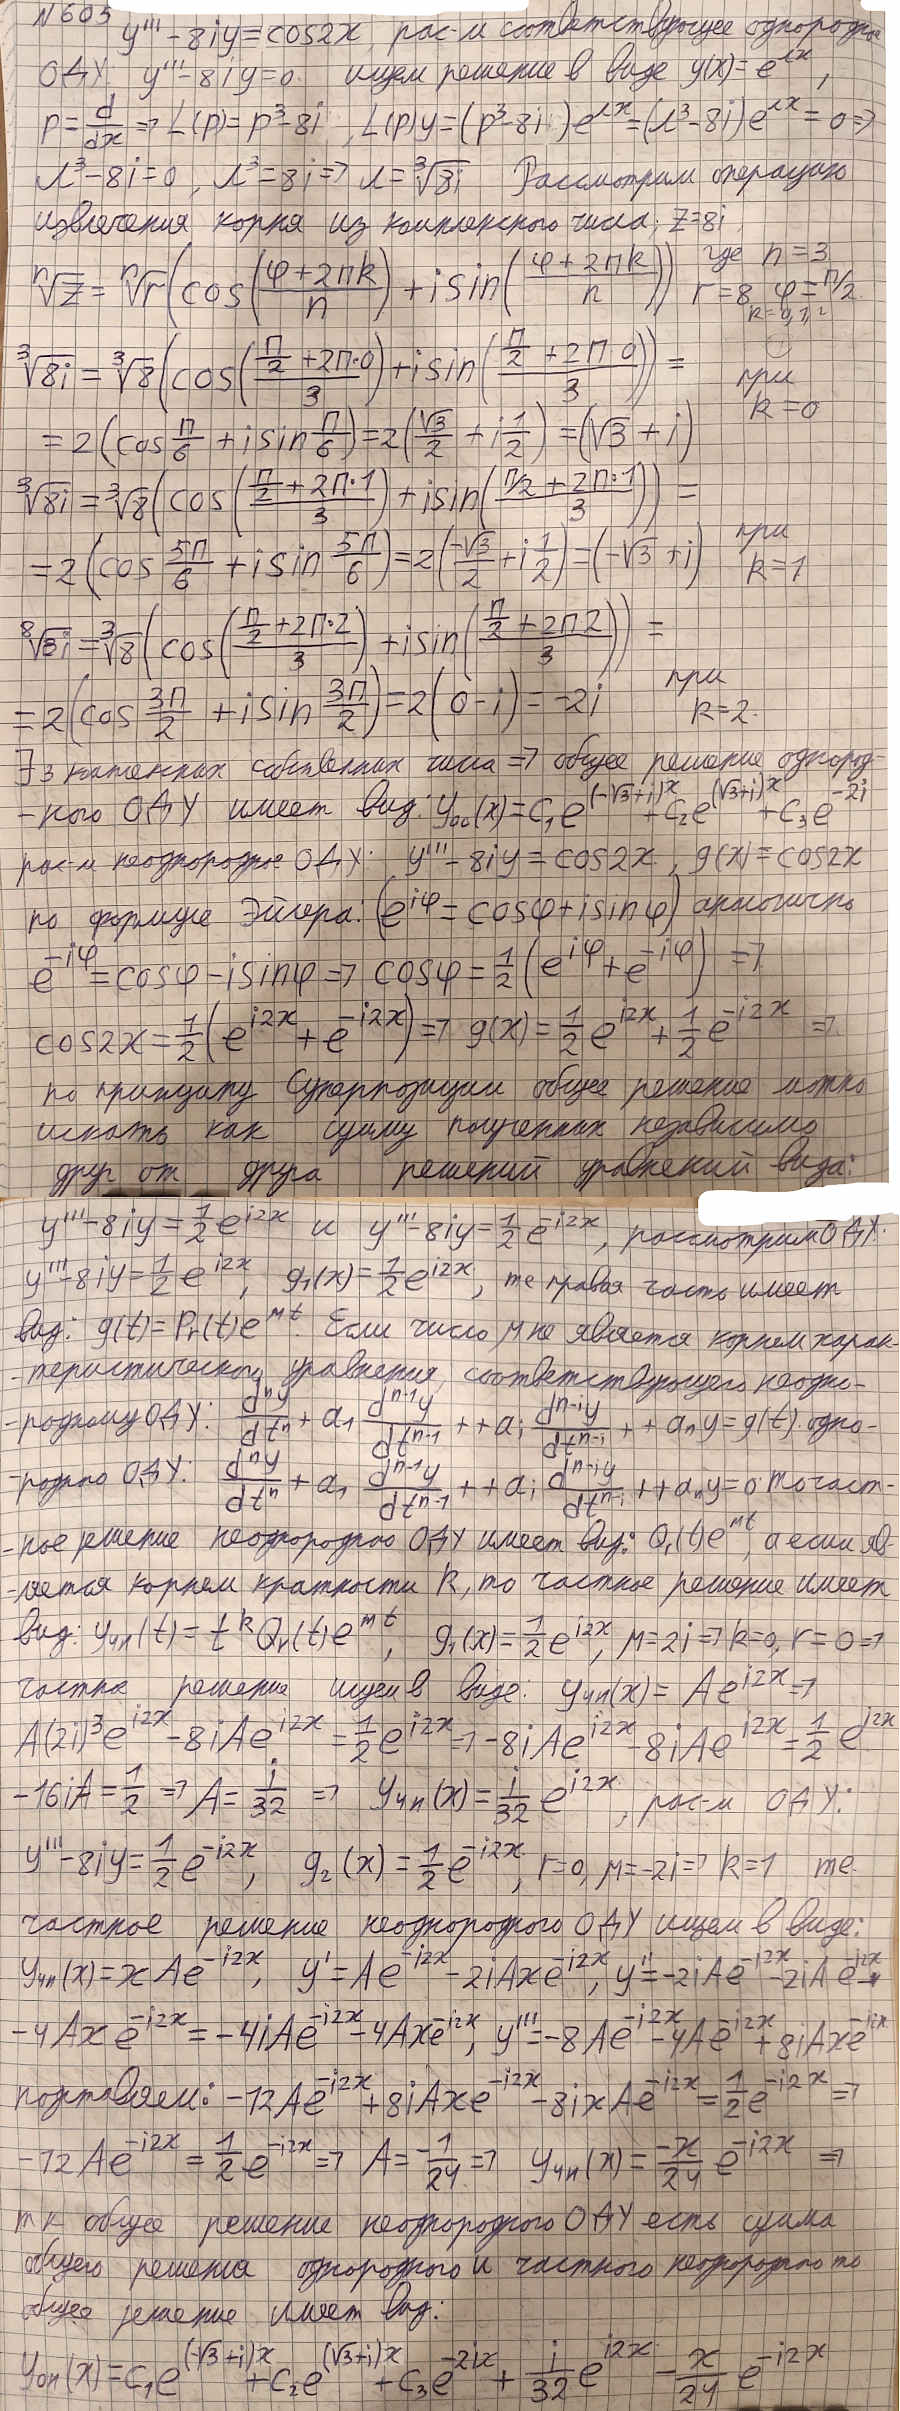 N603
y''' - 8iy = cos2x, рас-м соответствующее однородное
ОДУ: y''' - 8iy = 0. ищем решение в виде y(x) = e^{λx},
p = d/dx => L(p) = p³ - 8i, L(p)y = (p³ - 8i)e^{λx} = (λ³ - 8i)e^{λx} = 0 =>
λ³ - 8i = 0, λ³ = 8i => λ = ∛8i Рассмотрим операцию
извлечения корня из комплексного числа; z = 8i
ⁿ√z = ⁿ√r (cos((φ + 2πk)/n) + i sin((φ + 2πk)/n)) где n = 3
r = 8 φ = π/2
k = 0, 1, 2
∛8i = ∛8 (cos((π/2 + 2π·0)/3) + i sin((π/2 + 2π 0)/3)) = при
= 2(cos π/6 + i sin π/6) = 2(√3/2 + i 1/2) = (√3 + i) k = 0
∛8i = ∛8 (cos((π/2 + 2π·1)/3) + i sin((π/2 + 2π·1)/3)) =
= 2(cos 5π/6 + i sin 5π/6) = 2(-√3/2 + i 1/2) = (-√3 + i) при k = 1
∛8i = ∛8 (cos((π/2 + 2π·2)/3) + i sin((π/2 + 2π 2)/3)) =
= 2(cos 3π/2 + i sin 3π/2) = 2(0 - i) = -2i при k = 2.
собственных числа => общее решение однород-
-ного ОДУ имеет вид: y_oo(x) = C₁e^{(-√3+i)x} + C₂e^{(√3+i)x} + C₃e^{-2i}
рас-м неоднородное ОДУ: y''' - 8iy = cos2x, g(x) = cos2x
по формуле Эйлера: (e^{iφ} = cosφ + i sinφ) аналогично
e^{-iφ} = cosφ - i sinφ => cosφ = 1/2 (e^{iφ} + e^{-iφ}) =>
cos2x = 1/2 (e^{i2x} + e^{-i2x}) => g(x) = 1/2 e^{i2x} + 1/2 e^{-i2x} =>
по принципу суперпозиции общее решение можно
искать как сумму полученных независимо
друг от друга решений уравнений вида:
y''' - 8iy = 1/2 e^{i2x} и y''' - 8iy = 1/2 e^{-i2x}, рассмотрим ОДУ:
y''' - 8iy = 1/2 e^{i2x}, g₁(x) = 1/2 e^{i2x}, те правая часть имеет
вид: g(t) = P_r(t)e^{μt}. Если число μ не является корнем харак-
-теристического уравнения соответствующего неодно-
-родному ОДУ: dⁿy/dtⁿ + a₁ d^{n-1}y/dt^{n-1} + + a_i d^{n-i}y/dt^{n-i} + + a_n y = g(t) одно-
-родного ОДУ: dⁿy/dtⁿ + a₁ d^{n-1}y/dt^{n-1} + + a_i d^{n-i}y/dt^{n-i} + + a_n y = 0 то част-
-ное решение неоднородного ОДУ имеет вид: Q_r(t)e^{μt}, а если яв-
-ляется корнем кратности k, то частное решение имеет
вид: y_чн(t) = t^k Q_r(t)e^{μt}, g₁(x) = 1/2 e^{i2x}, μ = 2i => k = 0, r = 0 =>
решение ищем в виде: y_чн(x) = Ae^{i2x} =>
A(2i)³e^{i2x} - 8iAe^{i2x} = 1/2 e^{i2x} => -8iAe^{i2x} - 8iAe^{i2x} = 1/2 e^{i2x}
-16iA = 1/2 => A = i/32 => y_чн(x) = i/32 e^{i2x}, рас-м ОДУ:
y''' - 8iy = 1/2 e^{-i2x}, g₂(x) = 1/2 e^{-i2x}, r = 0, μ = -2i => k = 1 те
частное решение неоднородного ОДУ ищем в виде:
y_чн(x) = xAe^{-i2x}, y' = Ae^{-i2x} - 2iAxe^{-i2x}, y'' = -2iAe^{-i2x} - 2iAe^{-i2x} -
-4Axe^{-i2x} = -4iAe^{-i2x} - 4Axe^{-i2x}, y''' = -8Ae^{-i2x} - 4Ae^{-i2x} + 8iAxe^{-i2x}
подставляем: -12Ae^{-i2x} + 8iAxe^{-i2x} - 8ixAe^{-i2x} = 1/2 e^{-i2x} =>
-12Ae^{-i2x} = 1/2 e^{-i2x} => A = -1/24 => y_чн(x) = -x/24 e^{-i2x} =>
тк общее решение неоднородного ОДУ есть сумма
общего решения однородного и частного неоднородного то
общее решение имеет вид:
y_он(x) = C₁e^{(-√3+i)x} + C₂e^{(√3+i)x} + C₃e^{-2ix} + i/32 e^{i2x} - x/24 e^{-i2x}